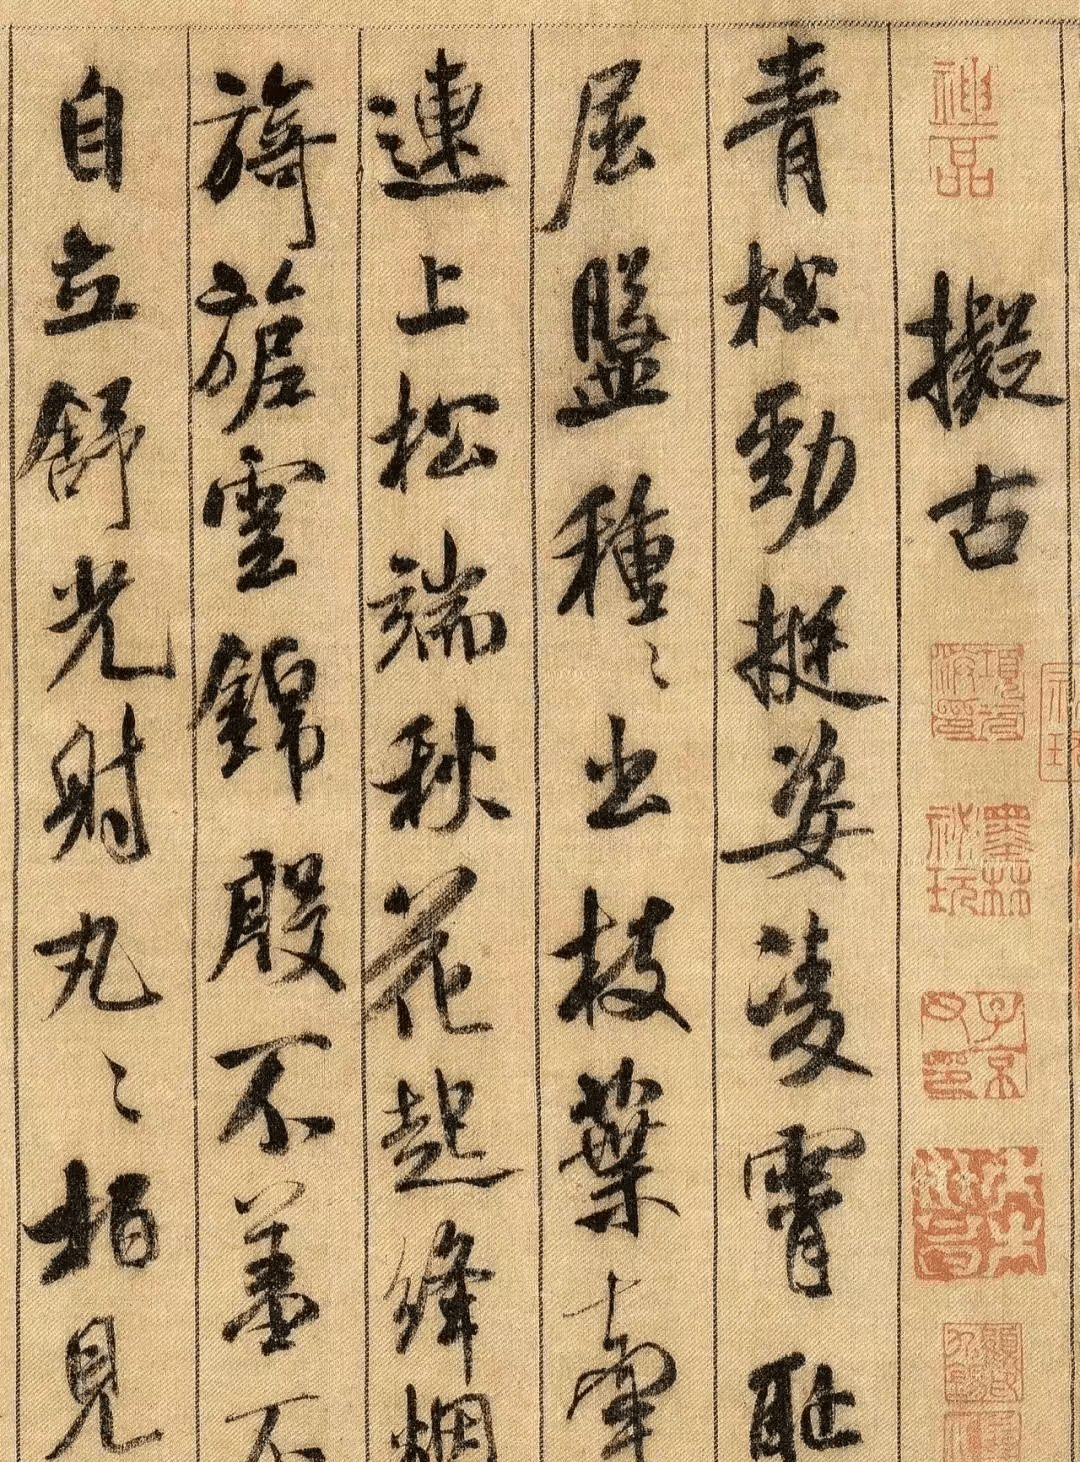 擬古
青松勁挺姿凌霄恥
屈盤種〻出枝葉牽
連上松端秋花起絳烟
旖旎雲錦殷不羞不
自立舒光射丸〻栢見